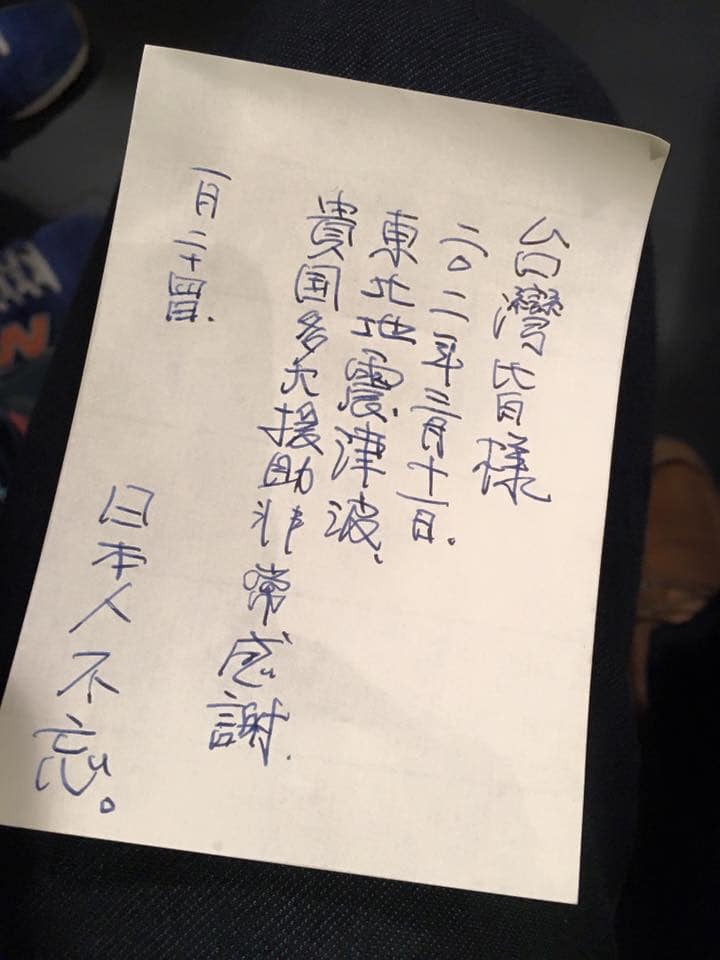 台灣皆様
二〇一一年三月十一日.
東北地震津波、
貴国多大援助非常感謝.
一月二十四日.
日本人不忘。